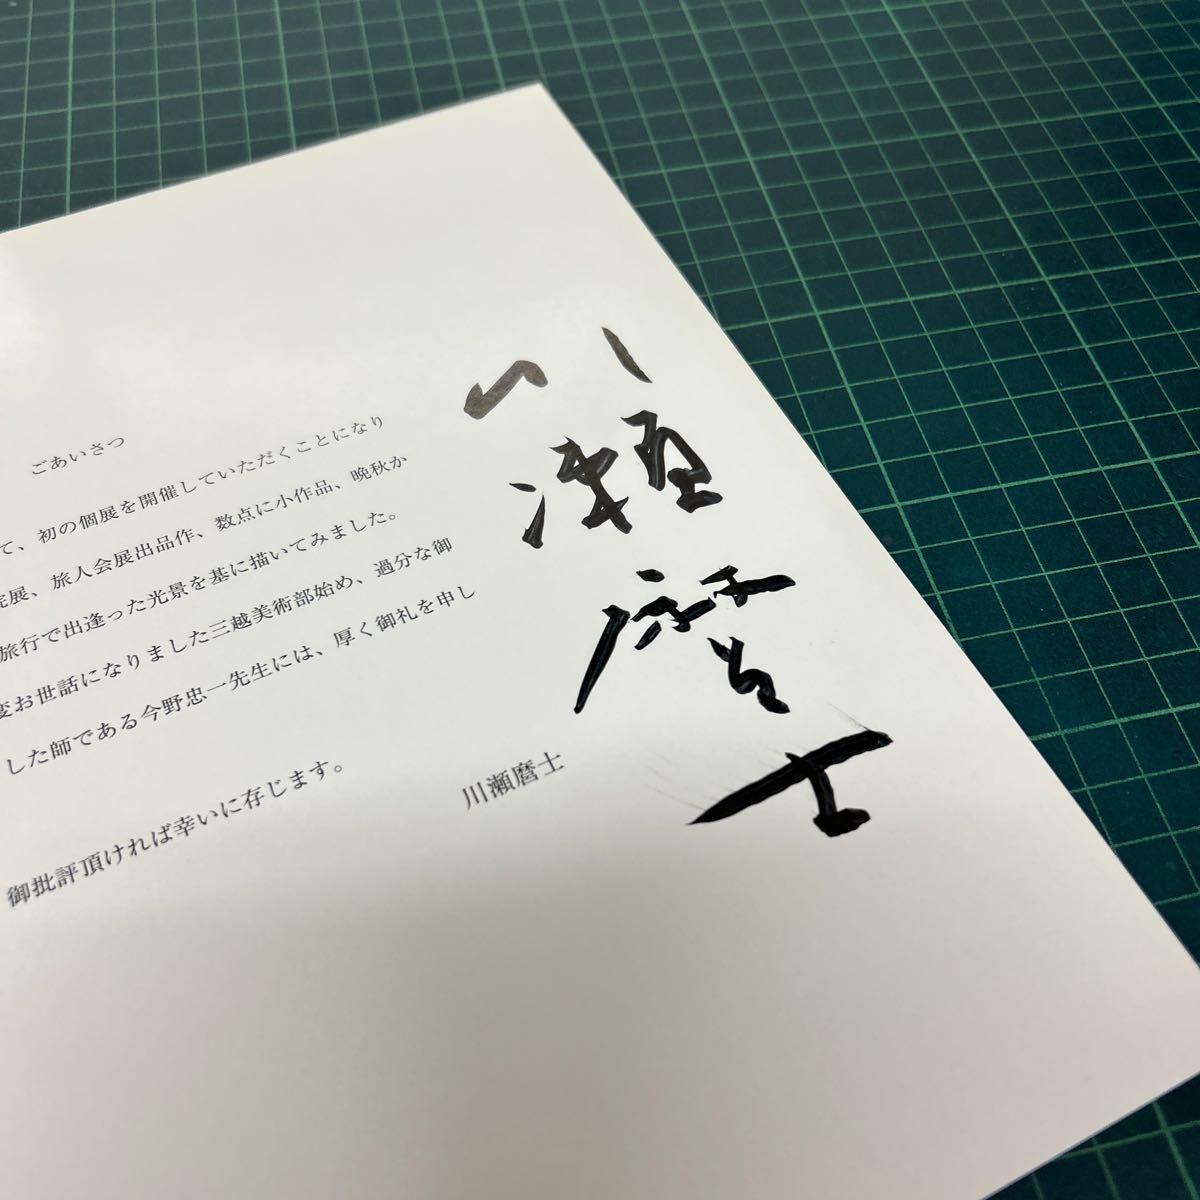 ごあいさつ
て、初の個展を開催していただくことになり
院展、旅人会展出品作、数点に小作品、晩秋か
旅行で出逢った光景を基に描いてみました。
変お世話になりました三越美術部始め、過分な御
した師である今野忠一先生には、厚く御礼を申し
御批評頂ければ幸いに存じます。
川瀬麿士
川瀬麿士